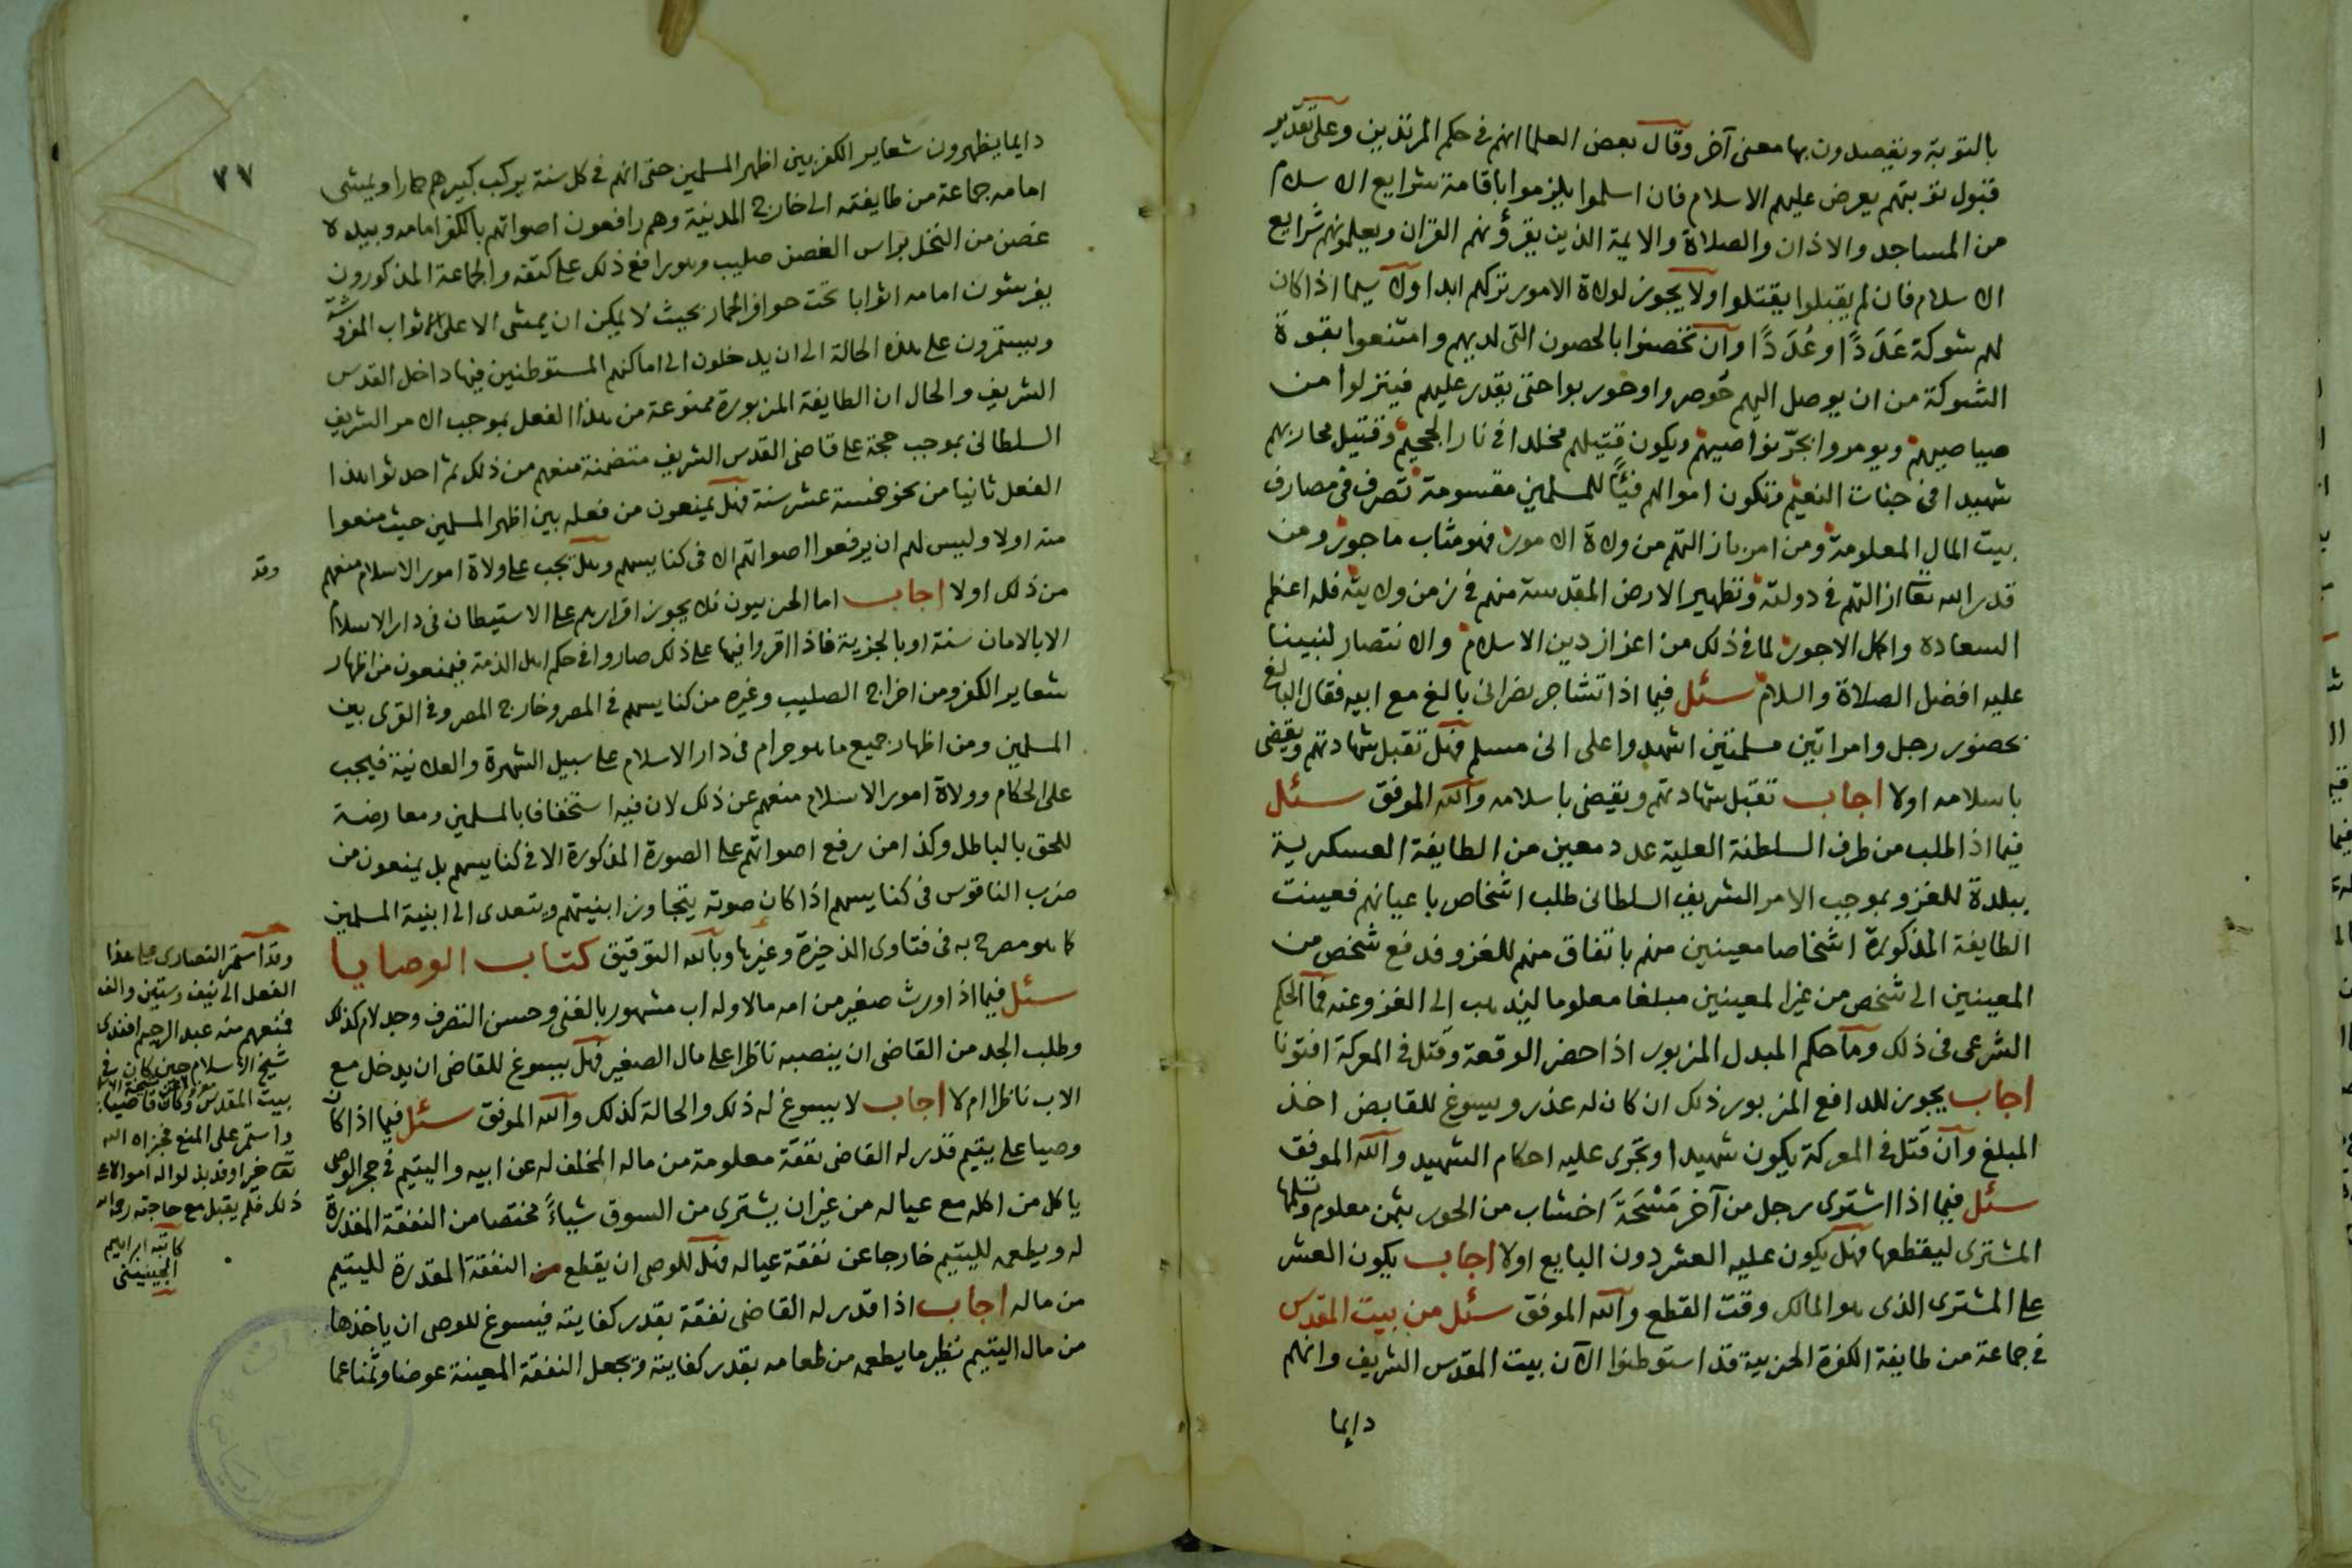 بالتوبة ويقصدون بها معنى آخر وقال بعض العلما انهم في حكم المرتدين وعلى تقدير
قبول توبتهم يعرض عليهم الاسلام فان اسلموا يلزموا باقامة شرايع الاسلام
من المساجد والاذان والصلاة والايمة الذين يقرؤنهم القران ويعلمونهم شرايع
الاسلام فان لم يقبلوا يقتلوا ولا يجوز لولاة الامور تركهم ابدا ولا سيما اذا كان
لهم شوكة عَدَدًا او عُدَدًا وان تحصنوا بالحصون التي لديهم وامتنعوا بقوة
الشوكة من ان يوصل اليهم حوصروا وحوربوا حتى يقدر عليهم فينزلوا من
صياصيهم ويومروا بجرّ نواصيهم ويكون قتيلهم مخلدا في نار الجحيم وقتيل محاربهم
شهيدا في جنات النعيم وتكون اموالهم فيئًا للمسلمين مقسومة تصرف في مصارف
بيت المال المعلومة ومن امر بازالتهم من ولاة الامور فهو مثاب ماجور ومن
قدر الله تعا ازالتهم في دولته وتطهير الارض المقدسة منهم في زمن ولايته فله اعظم
السعاده واكمل الاجور لما في ذلك من اعزاز دين الاسلام والانتصار لنبينا
عليه افضل الصلاة والسلام سئل فيما اذا تشاجر نصراني بالغ مع ابيه فقال البالغ
بحضور رجل وامراتين مسلمتين اشهدوا على اني مسلم فهل تقبل شهادتهم ويقضى
باسلامه اولا اجاب تقبل شهادتهم ويقضى باسلامه والله الموفق سئل
فيما اذا طلب من طرف السلطنة العلية عدد معين من الطايفة العسكرية
ببلدة للغزو بموجب الامر الشريف السلطاني طلب اشخاص باعيانهم فعينت
الطايفة المذكورة اشخاصا معينين منهم باتفاق منهم للغزو فدفع شخص من
المعينين الى شخص من غير المعينين مبلغا معلوما ليذهب الى الغزو عنه فما الحكم
الشرعي في ذلك وما حكم المبدل المزبور اذا حضر الوقعة وقتل في المعركة افتونا
اجاب يجوز للدافع المزبور ذلك ان كان له عذر ويسوغ للقابض اخذ
المبلغ وان قتل في المعركة يكون شهيدا وتجرى عليه احكام الشهيد والله الموفق
سئل فيما اذا اشترى رجل من آخر مَسْحَةَ اخشاب من الحور بثمن معلوم وتسلمها
المشترى ليقطعها فهل يكون عليه العشر دون البايع اولا اجاب يكون العشر
على المشترى الذى هو المالك وقت القطع والله الموفق سئل من بيت المقدس
في جماعة من طايفة الكفرة الحربية قد استوطنوا الآن بيت المقدس الشريف وانهم
دايما
٧٧
دايما يظهرون شعاير الكفر بين اظهر المسلمين حتى انهم في كل سنة يركب كبيرهم حمارا ويمشى
امامه جماعة من طايفته الى خارج المدينة وهم رافعون اصواتهم بالكفر امامه وبيده
غصن من النخل براس الغصن صليب وهو رافع ذلك على كتفه والجماعة المذكورون
يفرشون امامه اثوابا تحت حوافر الحمار بحيث لا يمكن ان يمشى الا على الاثواب المفروشة
ويستمرون على هذه الحالة الى ان يدخلون الى اماكنهم المستوطنين فيها داخل القدس
الشريف والحال ان الطايفة المزبورة ممنوعة من هذا الفعل بموجب الامر الشريف
السلطاني بموجب حجة على قاضى القدس الشريف متضمنة منعهم من ذلك ثم احدثوا هذا
الفعل ثانيا من نحو خمسة عشر سنة فهل يمنعون من فعله بين اظهر المسلمين حيث منعوا
منه اولا وليس لهم ان يرفعوا اصواتهم الا في كنايسهم وهل يجب على ولاة امور الاسلام منعهم
من ذلك اولا اجاب اما الحربيون فلا يجوز اقرارهم على الاستيطان في دار الاسلام
الا بالامان سنة او بالجزية فاذا اقروا فيها على ذلك صاروا في حكم اهل الذمة فيمنعون من اظهار
شعاير الكفر ومن اخراج الصليب وغيره من كنايسهم في المصر وخارج المصر وفي القرى بين
المسلمين ومن اظهار جميع ما هو حرام في دار الاسلام على سبيل الشهرة والعلانية فيجب
على الحكام وولاة امور الاسلام منعهم عن ذلك لان فيه استخفافا بالمسلمين ومعارضة
للحق بالباطل وكذا من رفع اصواتهم على الصورة المذكورة الا في كنايسهم بل يمنعون من
ضرب الناقوس في كنايسهم اذا كان صوته يتجاوز ابنيتهم ويتعدى الى ابنية المسلمين
كما هو مصرح به في فتاوى الذخيرة وغيرها وبالله التوفيق كتاب الوصايا
سئل فيما اذا ورث صغير من امه مالا وله اب مشهور بالغنى وحسن التصرف وجد لام كذلك
وطلب الجد من القاضى ان ينصبه ناظرا على مال الصغير فهل يسوغ للقاضى ان يدخل مع
الاب ناظرا ام لا اجاب لا يسوغ له ذلك والحالة كذلك والله الموفق سئل فيما اذا كان
وصيا على يتيم قدر له القاضى نفقة معلومة من ماله المخلف له عن ابيه واليتيم في حجر الوصى
ياكل من اكله مع عياله من غير ان يشترى من السوق شياءً مختصا من النفقة المقدرة
له ويطعمه لليتيم خارجا عن نفقة عياله فهل للوصى ان يقطع من النفقة المقدرة لليتيم
من ماله اجاب اذا قدر له القاضى نفقة بقدر كفايته فيسوغ للوصى ان ياخذها
من مال اليتيم نظير ما يطعمه من طعامه بقدر كفايته وتجعل النفقة المعينة عوضا وثمنا عما
وقد
وقد استمر النصارى على هذا
الفعل الى نيف وستين والف
فمنعهم منه عبد الرحيم افندى
شيخ الاسلام حين كان في
بيت المقدس وكان قاضيا
واستمر على المنع فجزاه الله
تعا خيرا وقد بذلوا له اموالا على
ذلك فلم يقبل مع حاجته
كاتبه ابراهيم
الجينينى